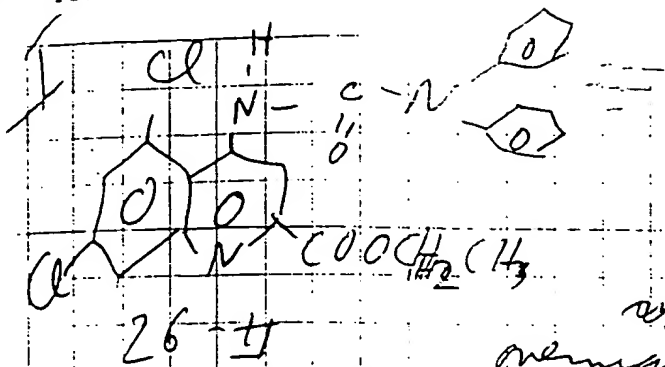 Cl H
N - C - N
O
O O O O
N COOCH2CH3
Cl
26 - II